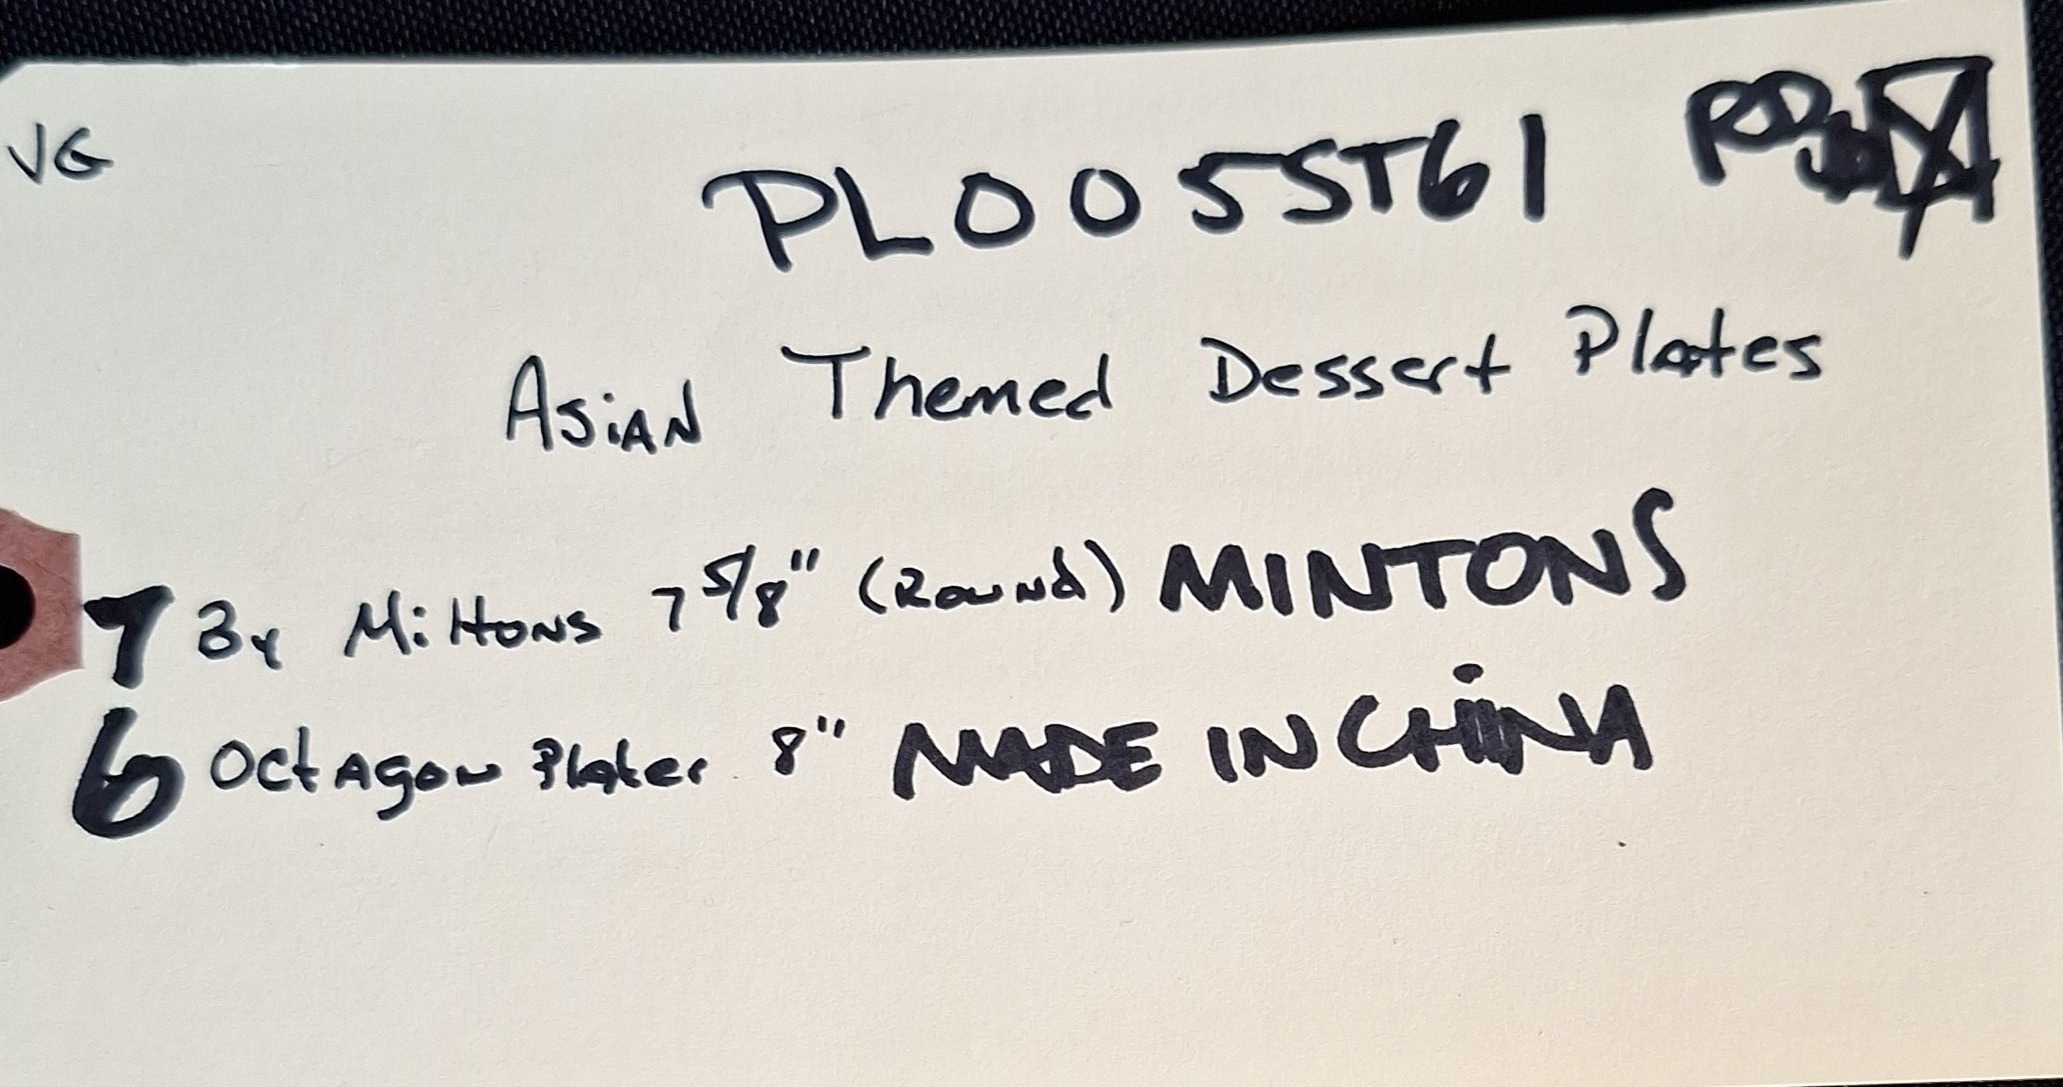 VG
PL005ST61
Asian Themed Dessert Plates
7 By Miltons 7 5/8" (Round) MINTONS
6 Octagon Plates 8" MADE IN CHINA